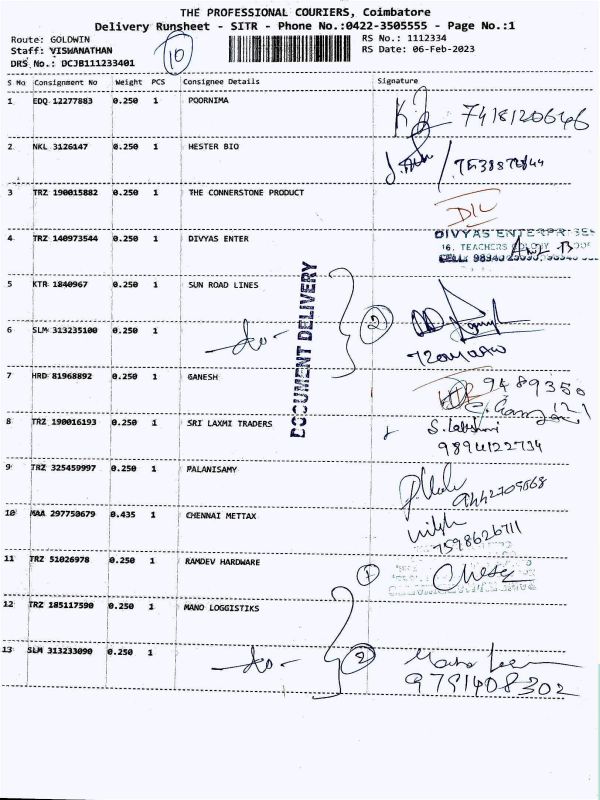 THE PROFESSIONAL COURIERS, Coimbatore
Delivery Runsheet - SITR - Phone No.:0422-3505555 - Page No.:1
Route: GOLDWIN
Staff: VISWANATHAN
DRS No.: DCJB111233401
10
RS No.: 1112334
RS Date: 06-Feb-2023
S No Consignment No Weight PCS Consignee Details Signature
1 EDQ 12277883 0.250 1 POORNIMA 7418120646
2 NKL 3126147 0.250 1 HESTER BIO
3 TRZ 190015882 0.250 1 THE CONNERSTONE PRODUCT
4 TRZ 140973544 0.250 1 DIVYAS ENTER
DIVYAS ENTERPRISES
16, TEACHERS COLONY
CELL:
5 KTR 1840967 0.250 1 SUN ROAD LINES
2
6 SLM 313235100 0.250 1 -do-
7 HRD 81968892 0.250 1 GANESH
9489350
121
8 TRZ 190016193 0.250 1 SRI LAXMI TRADERS
S. Lakshmi
9894122734
9 TRZ 325459997 0.250 1 PALANISAMY
10 MAA 297750679 0.435 1 CHENNAI METTAX
7598626711
11 TRZ 51026978 0.250 1 RAMDEV HARDWARE 1
12 TRZ 185117590 0.250 1 MANO LOGGISTIKS
13 SLM 313233090 0.250 1 -do- 2
9791408302
DOCUMENT DELIVERY